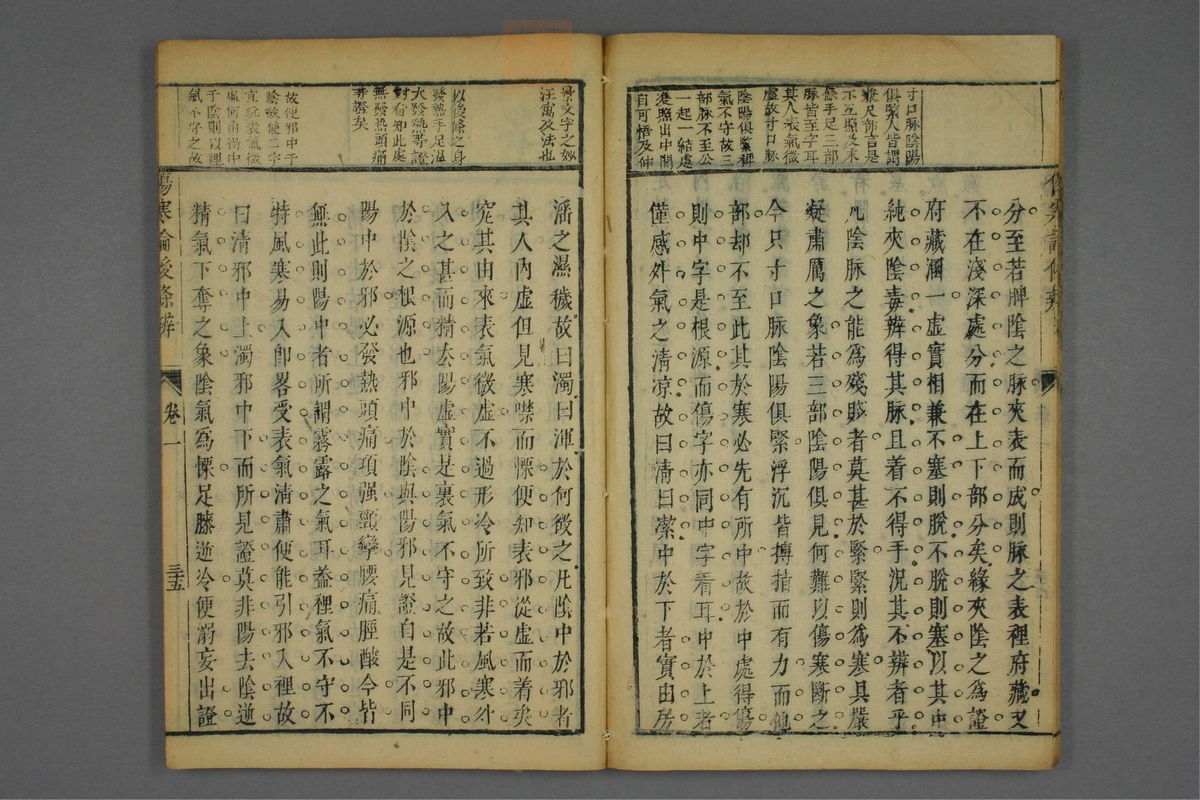 寸口脉陰陽
俱緊人皆謂
兼尺部言是
不互照及未
緣手足三部
脉皆至字耳
其人表氣微
虛故寸口脉
陰陽俱緊裡
氣不守故三
部脉不至公
一起一結處
雙照出中間
自可悟及仲
分至若脾陰之脉夾表而成則脉之表裡府藏又
不在淺深處分而在上下部分矣緣夾陰之為證
府藏溷一虛實相兼不塞則脫不脫則塞以其中
純夾陰毒辨得其脉且着不得手況其不辨者乎
凡陰脉之能為殘賊者莫甚於緊緊則為寒具嚴
凝肅厲之象若三部陰陽俱見何難以傷寒斷之
今只寸口脉陰陽俱緊浮沉皆搏指而有力而他
部却不至此其於寒必先有所中故於中處得傷
則中字是根源而傷字亦同中字看耳中於上者
僅感外氣之清凉故曰清曰潔中於下者實由房
景文字之妙
汪寓及法也
以後條之身
發熱手足溫
大發熱等證
對看知此處
無發熱頭痛
等證矣
故使邪中于
陰故使二字
直玩表氣微
虛何由得中
于陰則以裡
氣不守之故
滛之濕穢故曰濁曰渾於何徵之凡陰中於邪者
其人內虛但見寒噤而慄便知表邪從虛而着矣
究其由來表氣微虛不過形冷所致非若風寒外
入之甚而精去陽虛實是裏氣不守之故此邪中
於陰之根源也邪中於陰與陽邪見證自是不同
陽中於邪必發熱頭痛項强頸攣腰痛脛酸今皆
無此則陽中者所謂霧露之氣耳葢裡氣不守不
特風寒易入卽畧受表氣清肅便能引邪入裡故
曰清邪中上濁邪中下而所見證莫非陽去陰逆
精氣下奪之象陰氣為慄足膝逆冷便溺妄出證
傷寒論後條辨
卷一
三五